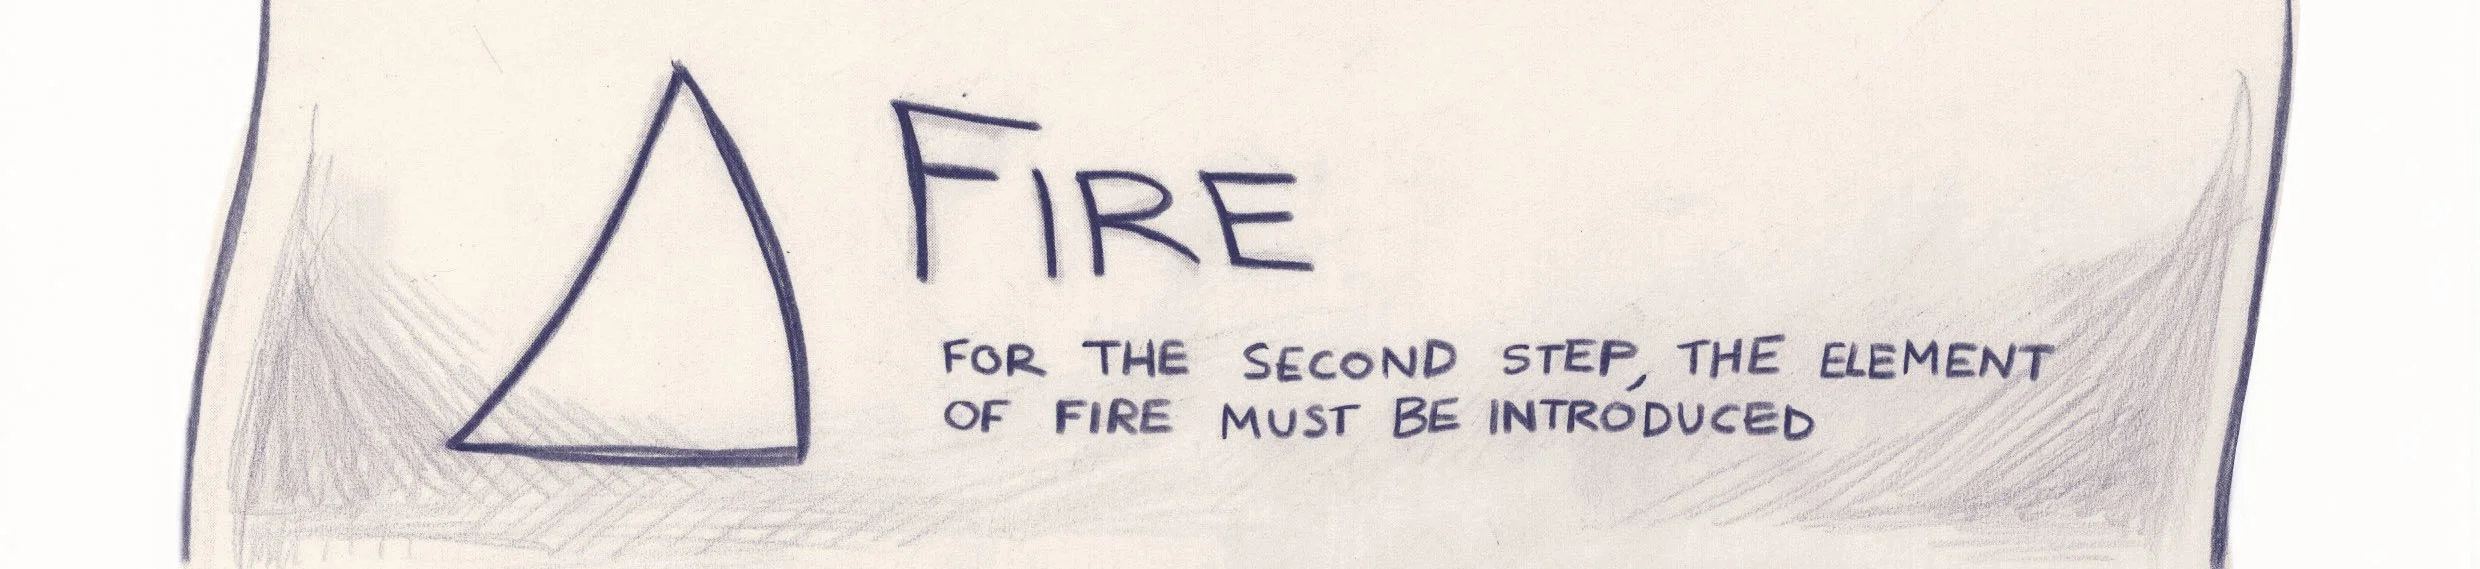 FIRE
FOR THE SECOND STEP, THE ELEMENT
OF FIRE MUST BE INTRODUCED